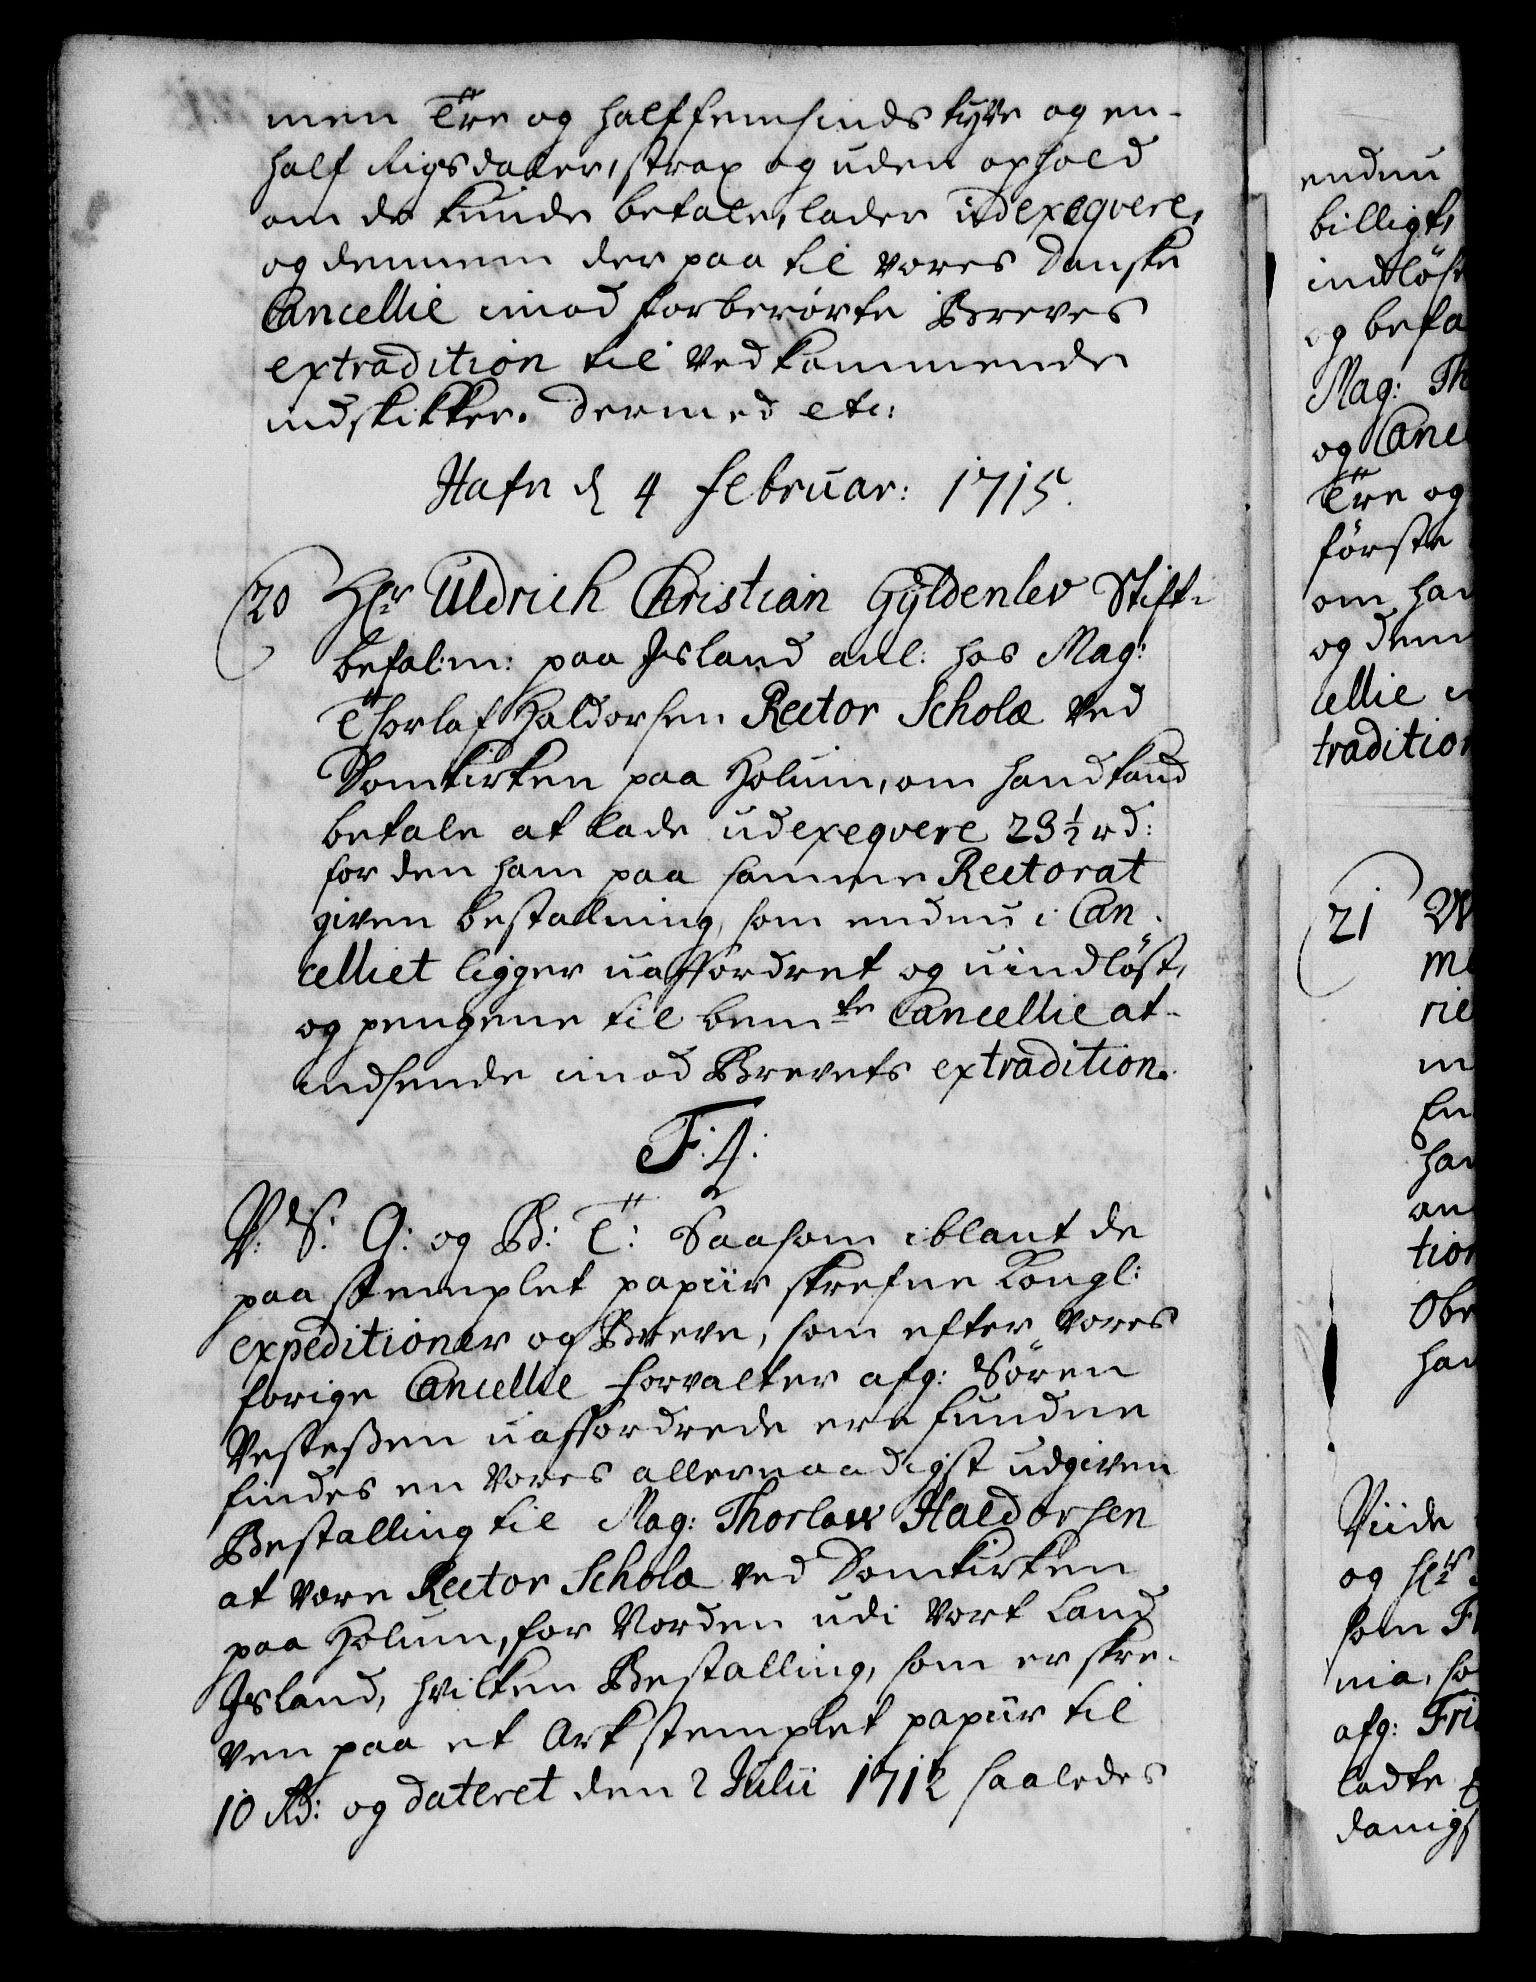 men Tre og halffemsinds tyve og en-
half Rigsdaler, strax og uden ophold
om de kunde betale, lader udexeqvere,
og dennem der paa til vores Danske
Cancellie imod forberørte Breves
extradition til Vedkommende
indskikker. Dermed etc:
Hafn d 4 Februar: 1715.
20 Hr Uldrich Christian Gyldenlev Stift-
befal:m: paa Jsland anl: hos Mag:
Thorlaf Haldorsen Rector Scholæ ved
Domkirken paa Holum, om hand kand
betale at lade udexeqvere 23½ rd:
for den ham paa samme Rectorat
given bestalning, som endnu i Can-
celliet ligger uaffordret og uindløst,
og pengene til bemte Cancellie at-
indsende imod Brevets extradition.
F: 4:
V: S: G: og B: T: Saasom iblant de
paa stemplet papiir skrefne Kongl:
expeditioner og Breve, som efter vores
forige Cancellie forvalter afg: Sören
Vesteßen uaffordrede ere fundne
findes en vores allernaadigst udgiven
Bestalling til Mag: Thorlav Haldorsen
at være Rector Scholæ ved Domkirken
paa Holum, for Norden udi vort Land
Jsland, hvilken Bestalling, som er skre-
ven paa et Ark stemplet papiir til
10 Rd: og dateret den 2 Julii 1712 saaledes
endnu
billigt,
indløse
og befa
Mag: Th
og Canc
Tre og
förste
om han
og dem
cellie
tradition
21
En
han
an
tion
Obe
han
Viide
og Hr
som F
nia, so
afg: Fri
ladte
danigs